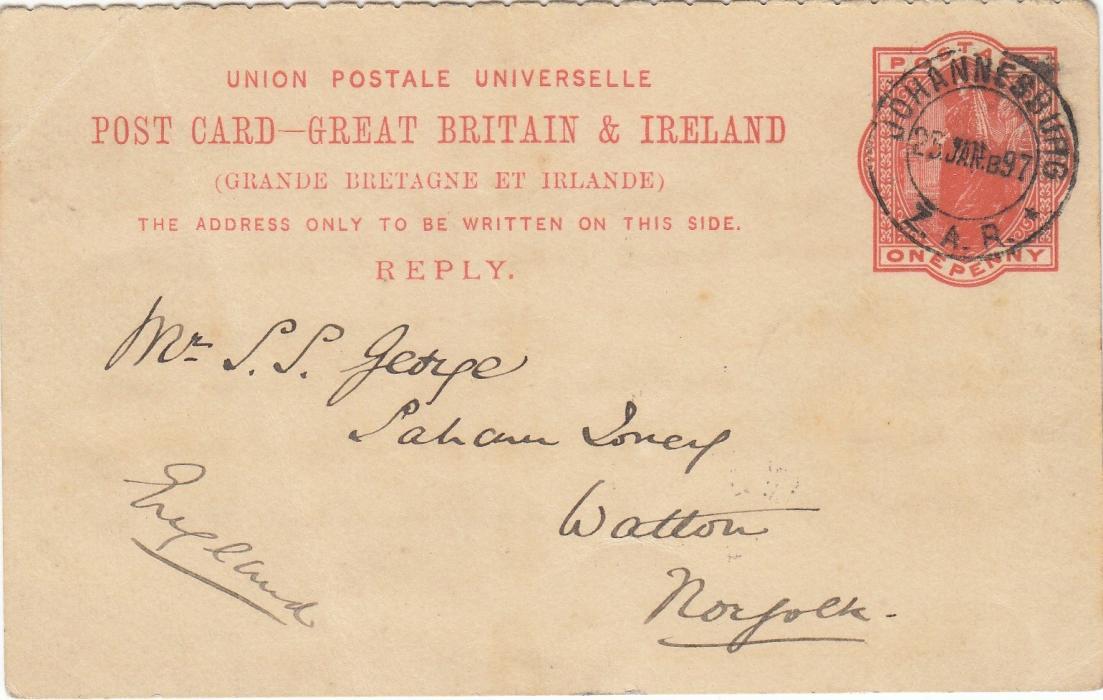 UNION POSTALE UNIVERSELLE
POST CARD—GREAT BRITAIN & IRELAND
(GRANDE BRETAGNE ET IRLANDE)
THE ADDRESS ONLY TO BE WRITTEN ON THIS SIDE.
REPLY.
POSTAGE
ONE PENNY
JOHANNESBURG
25 JAN.B97
Z.A.R.
Mr. S.S. George
Saham Toney
Watton
Norfolk
England